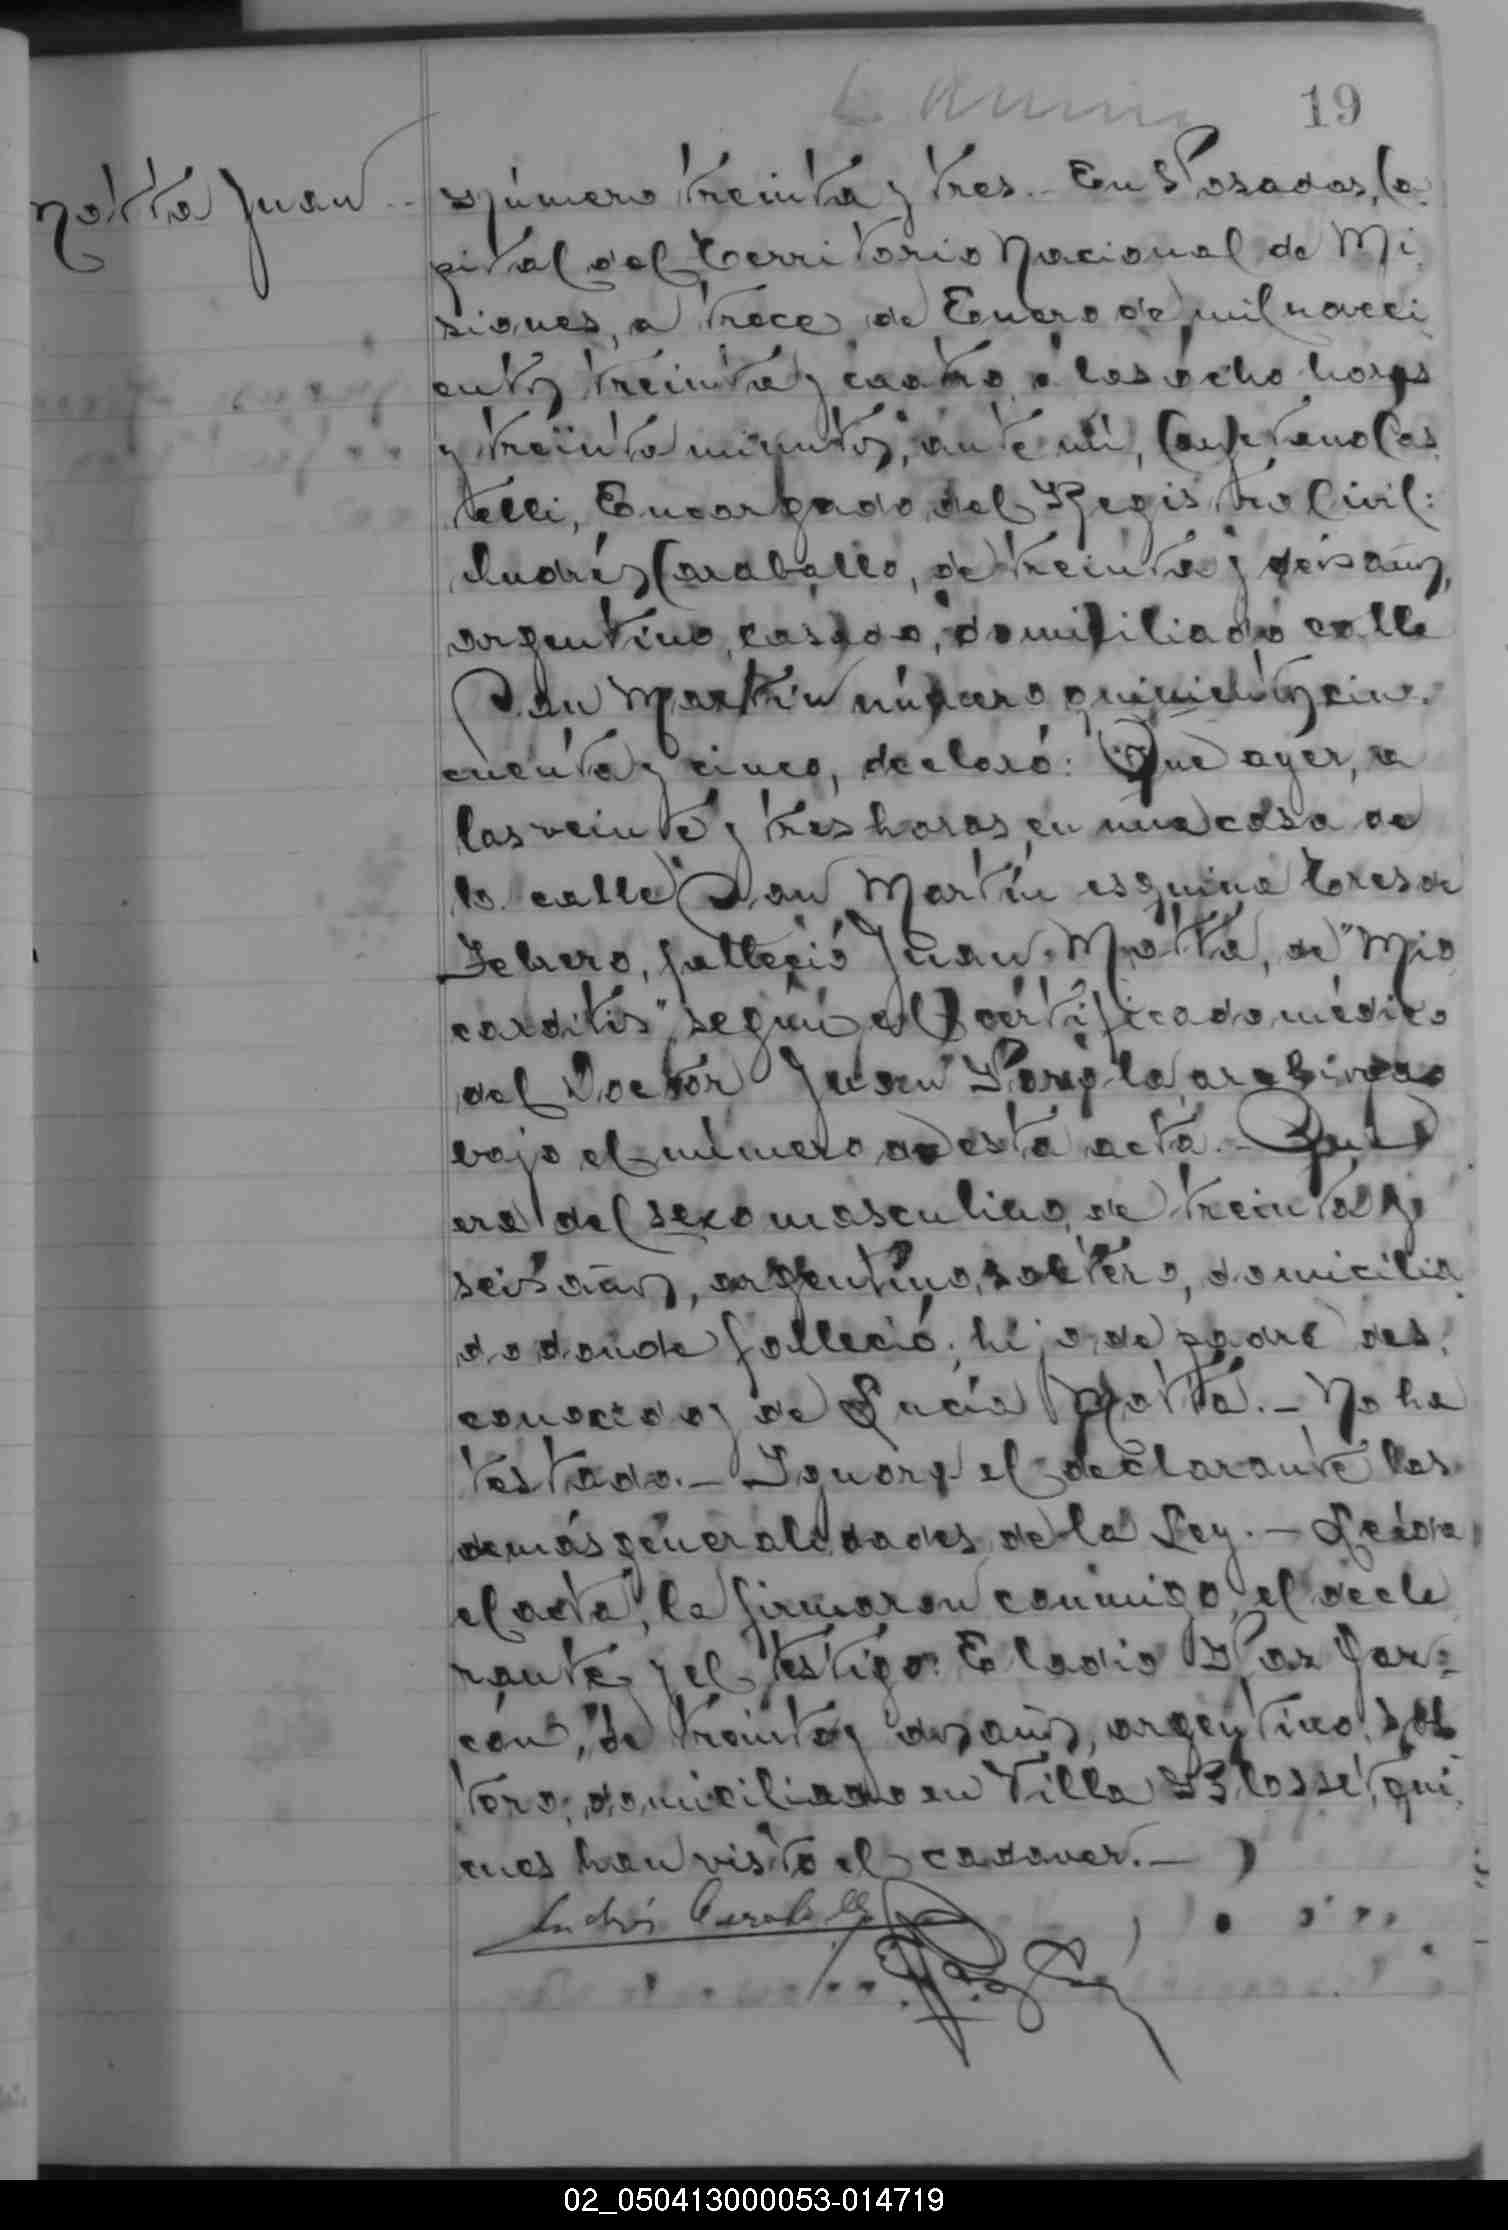 19
Motta Juan
Número treinta y tres.- En Posadas, Ca
pital del Territorio Nacional de Mi
siones, a trece de Enero de mil noveci
entos treinta y cuatro, a las ocho horas
y treinta minutos, ante mí, Cayetano Cas
telli, Encargado del Registro Civil:
Andrés Caraballo, de treinta y seis años,
argentino, casado, domiciliado calle
San Martín número quinientos cin-
cuenta y cinco, declaró: Que ayer, a
las veinte y tres horas, en una casa de
la calle San Martín esquina Tres de
Febrero, falleció Juan Motta, de "Mio
carditis" según el certificado médico
del Doctor Juan archivado
bajo el número de esta acta.- Que
era del sexo masculino, de treinta y
seis años, argentino, soltero, domicilia
do donde falleció, hijo de padre des
conocido y de Lucía Motta.- No ha
testado.- Ignora el declarante las
demás generalidades de la Ley.- Leída
el acta, la firmaron conmigo, el decla
rante y el testigo: Eladio Paz Gar-
zón, de treinta y dos años, argentino, sol
tero, domiciliado en Villa Blosset, qui
enes han visto el cadaver.-
Andrés Caraballo
02_050413000053-014719